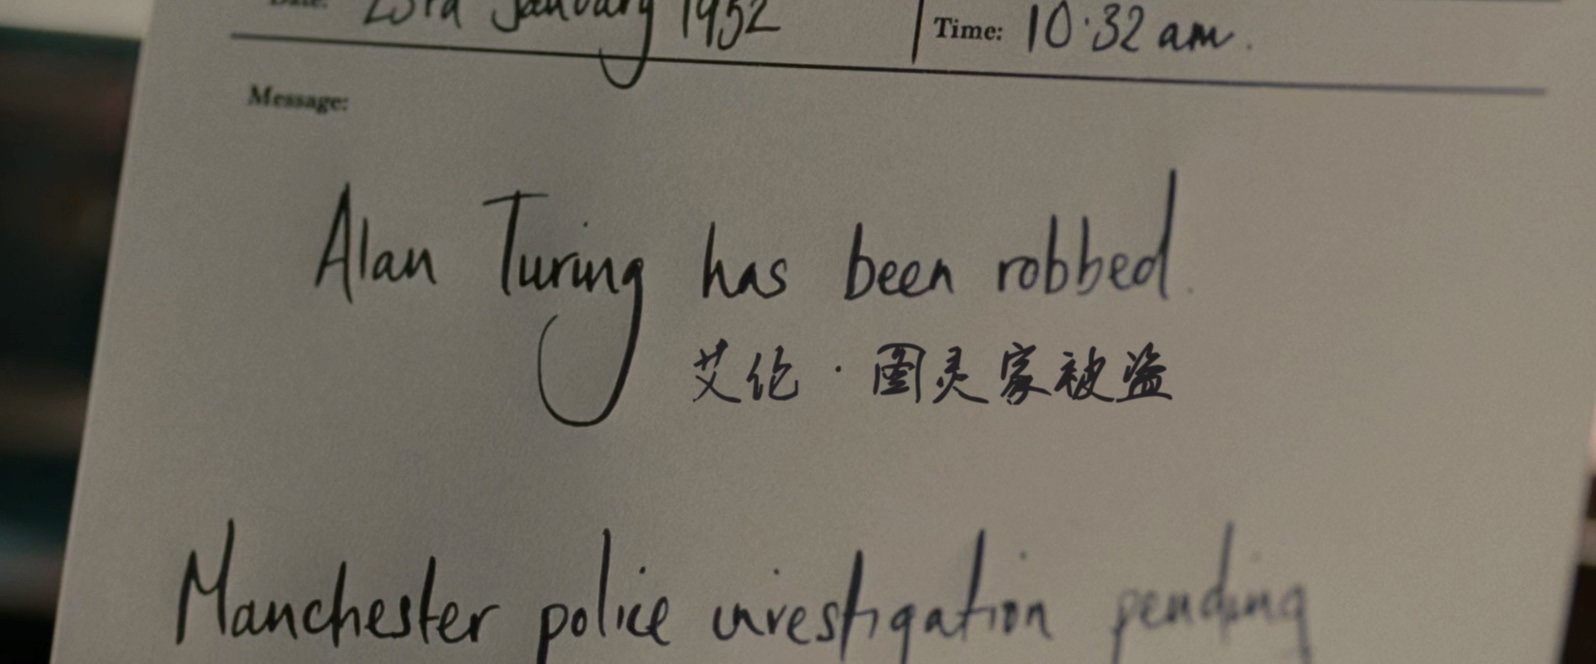 Date: 23rd January 1952
Time: 10:32 am.
Message:
Alan Turing has been robbed.
艾伦·图灵家被盗
Manchester police investigation pending